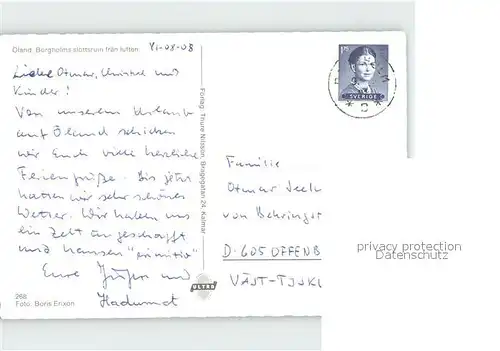 Öland. Borgholms slottsruin från luften.
Liebe Otmar, Christel und
Kinder!
Von unserem Urlaub
auf Öland schicken
wir Euch viele herzliche
Feriengrüße. Bis jetzt
hatten wir sehr schönes
Wetter. Wir haben uns
ein Zelt angeschafft
und hausen "primitiv"
Eure Jürgen und
Hadumut
268
Foto: Boris Erixon
Förlag: Thure Nilsson, Bragegatan 24, Kalmar
ULTRA
SVERIGE
Familie
Otmar
von Behringst
D-605 OFFENB
VÄST-TYSKL
privacy protection
Datenschutz